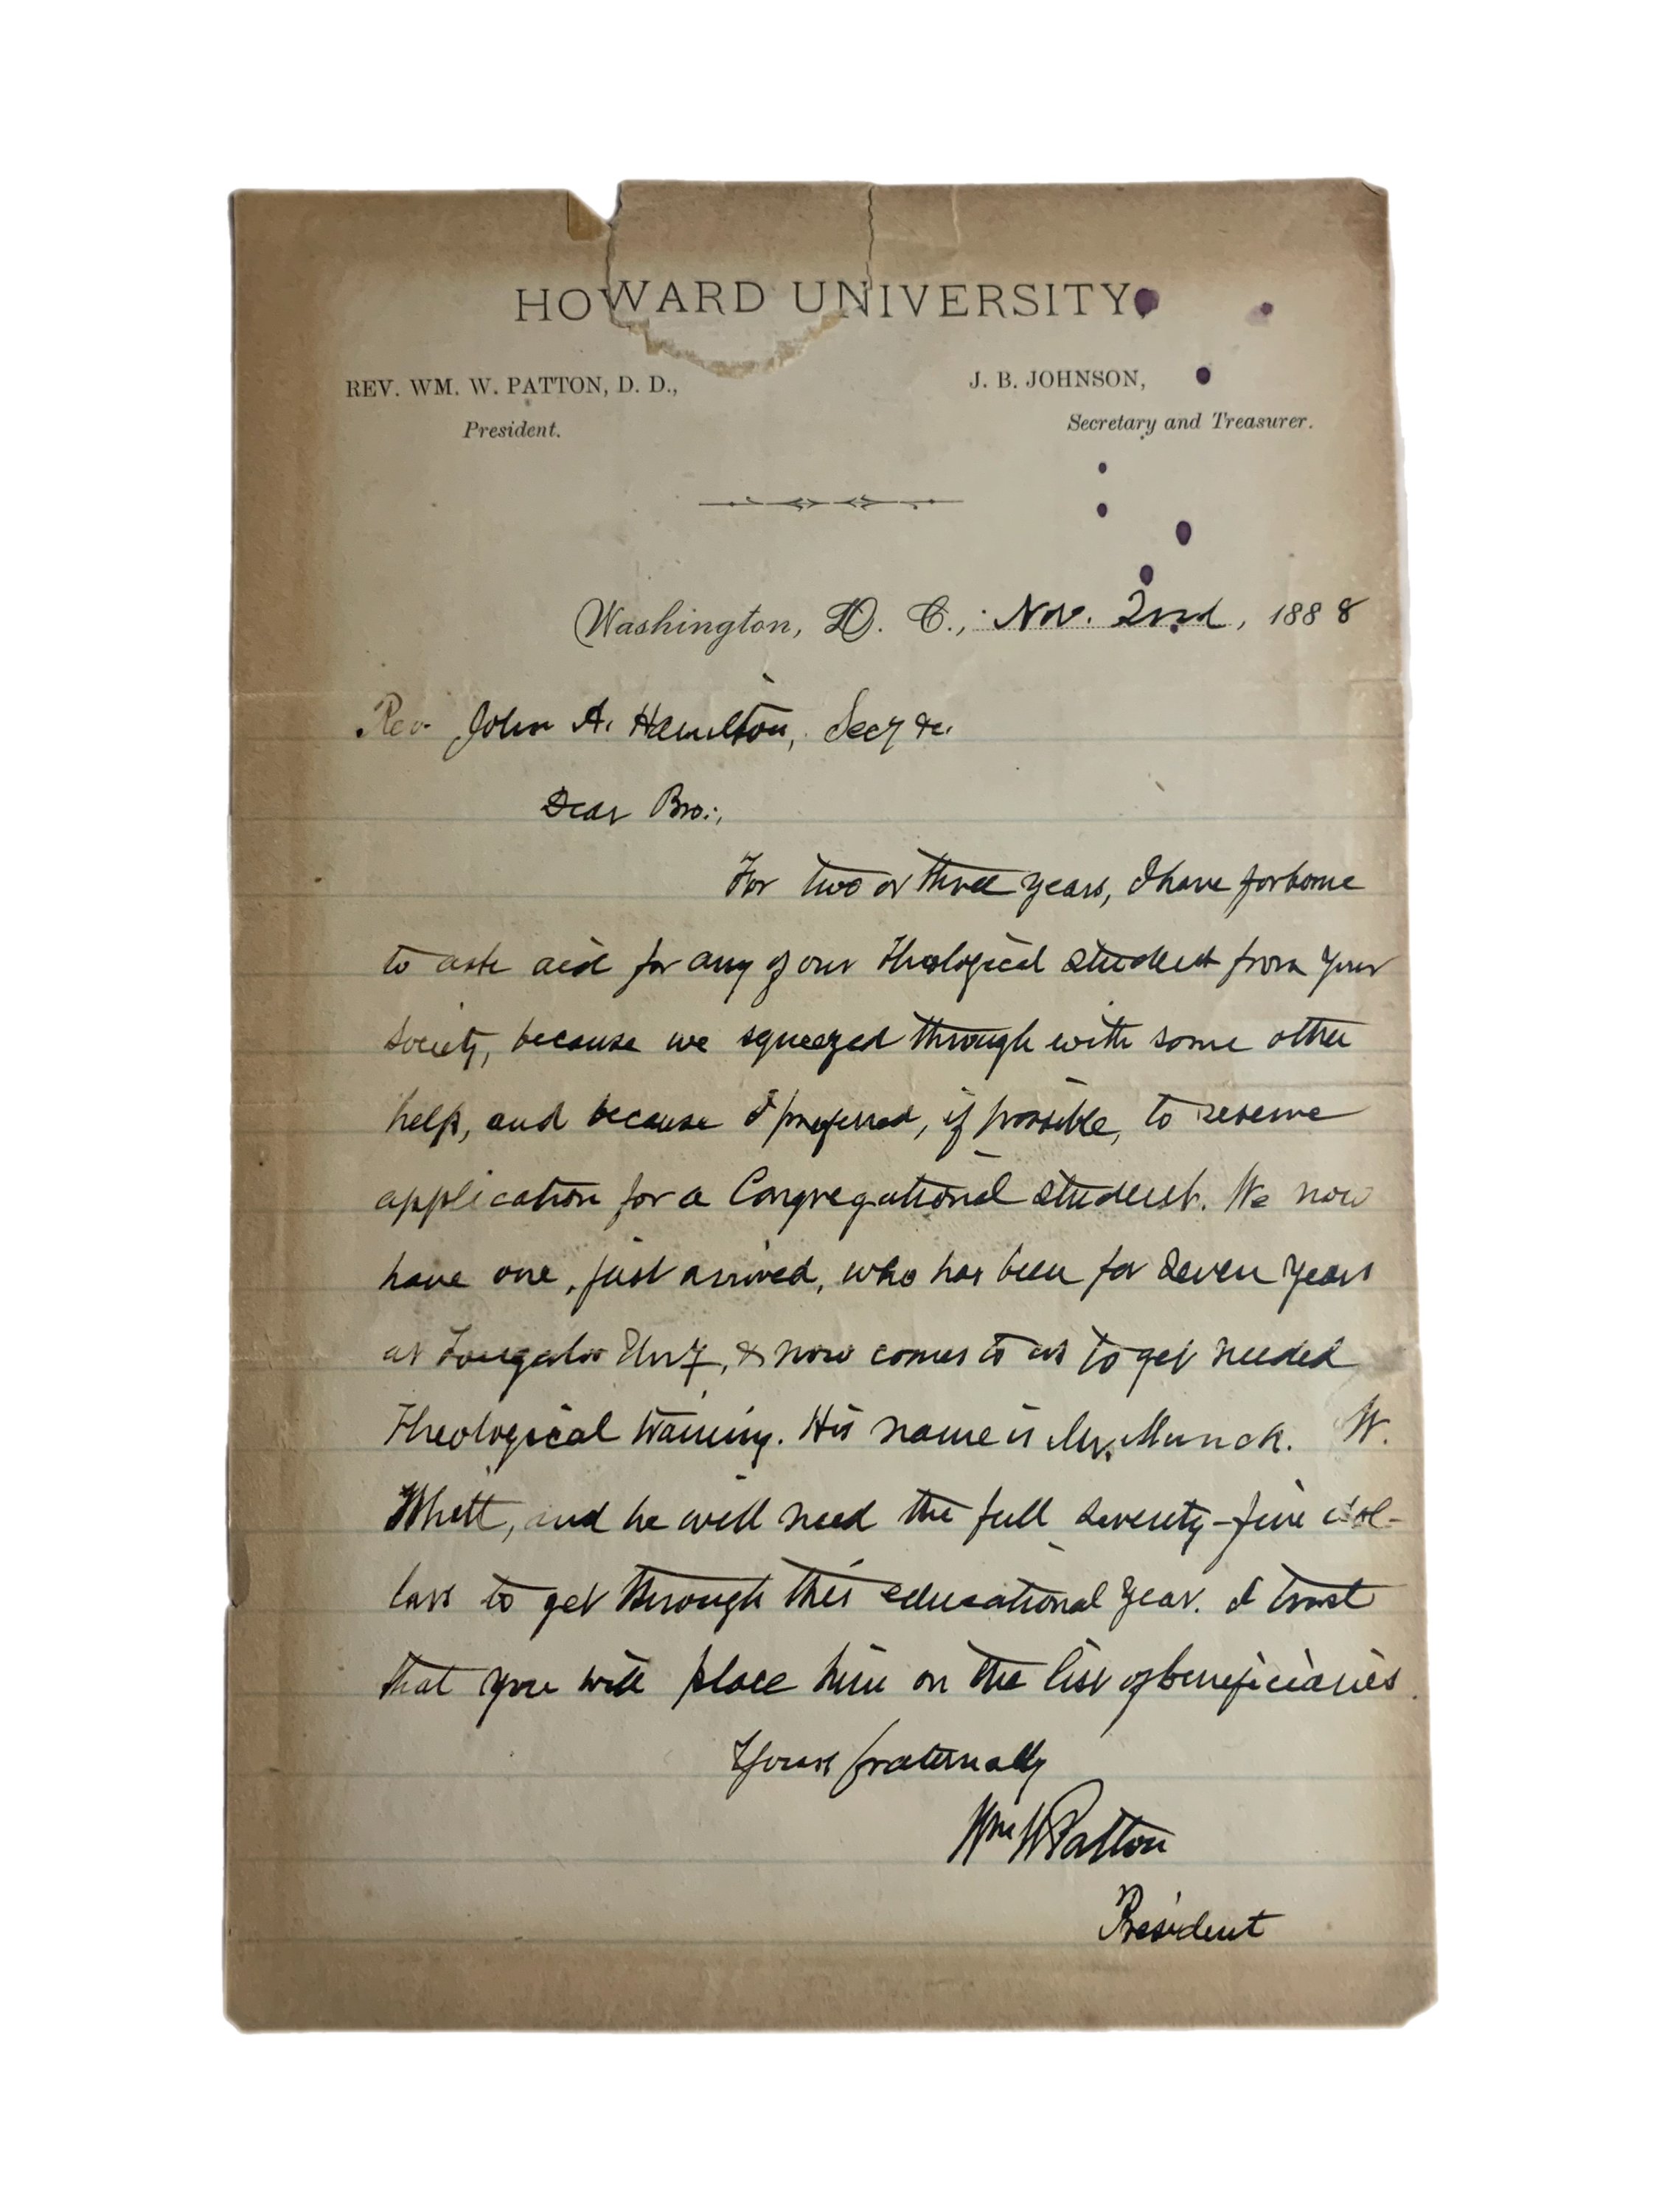 HOWARD UNIVERSITY,
REV. WM. W. PATTON, D. D.,
President.
J. B. JOHNSON,
Secretary and Treasurer.
Washington, D. C., Nov. 2nd, 1888
Rev. John A. Hamilton, Secy &c.
Dear Bro.:,
For two or three years, I have forborne
to ask aid for any of our theological students from your
society, because we squeezed through with some other
help, and because I preferred, if possible, to reserve
application for a Congregational student. We now
have one, just arrived, who has been for seven years
at Tougaloo Univ, & now comes to us to get needed
theological training. His name is Mr. W.
and he will need the full seventy-five dol-
lars to get through this educational year. I trust
that you will place him on the list of beneficiaries.
Yours fraternally
Wm W Patton
President